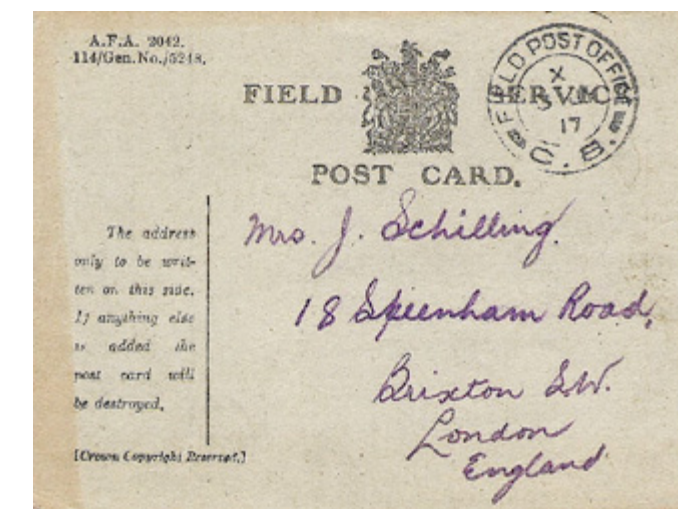 A.F.A. 2042.
114/Gen.No./5248.
FIELD SERVICE
POST CARD.
FIELD POST OFFICE
X
17
C.B.
The address
only to be writ-
ten on this side.
If anything else
is added the
post card will
be destroyed.
[Crown Copyright Reserved.]
Mrs. J. Schilling.
18 Speenham Road,
Brixton S.W.
London
England